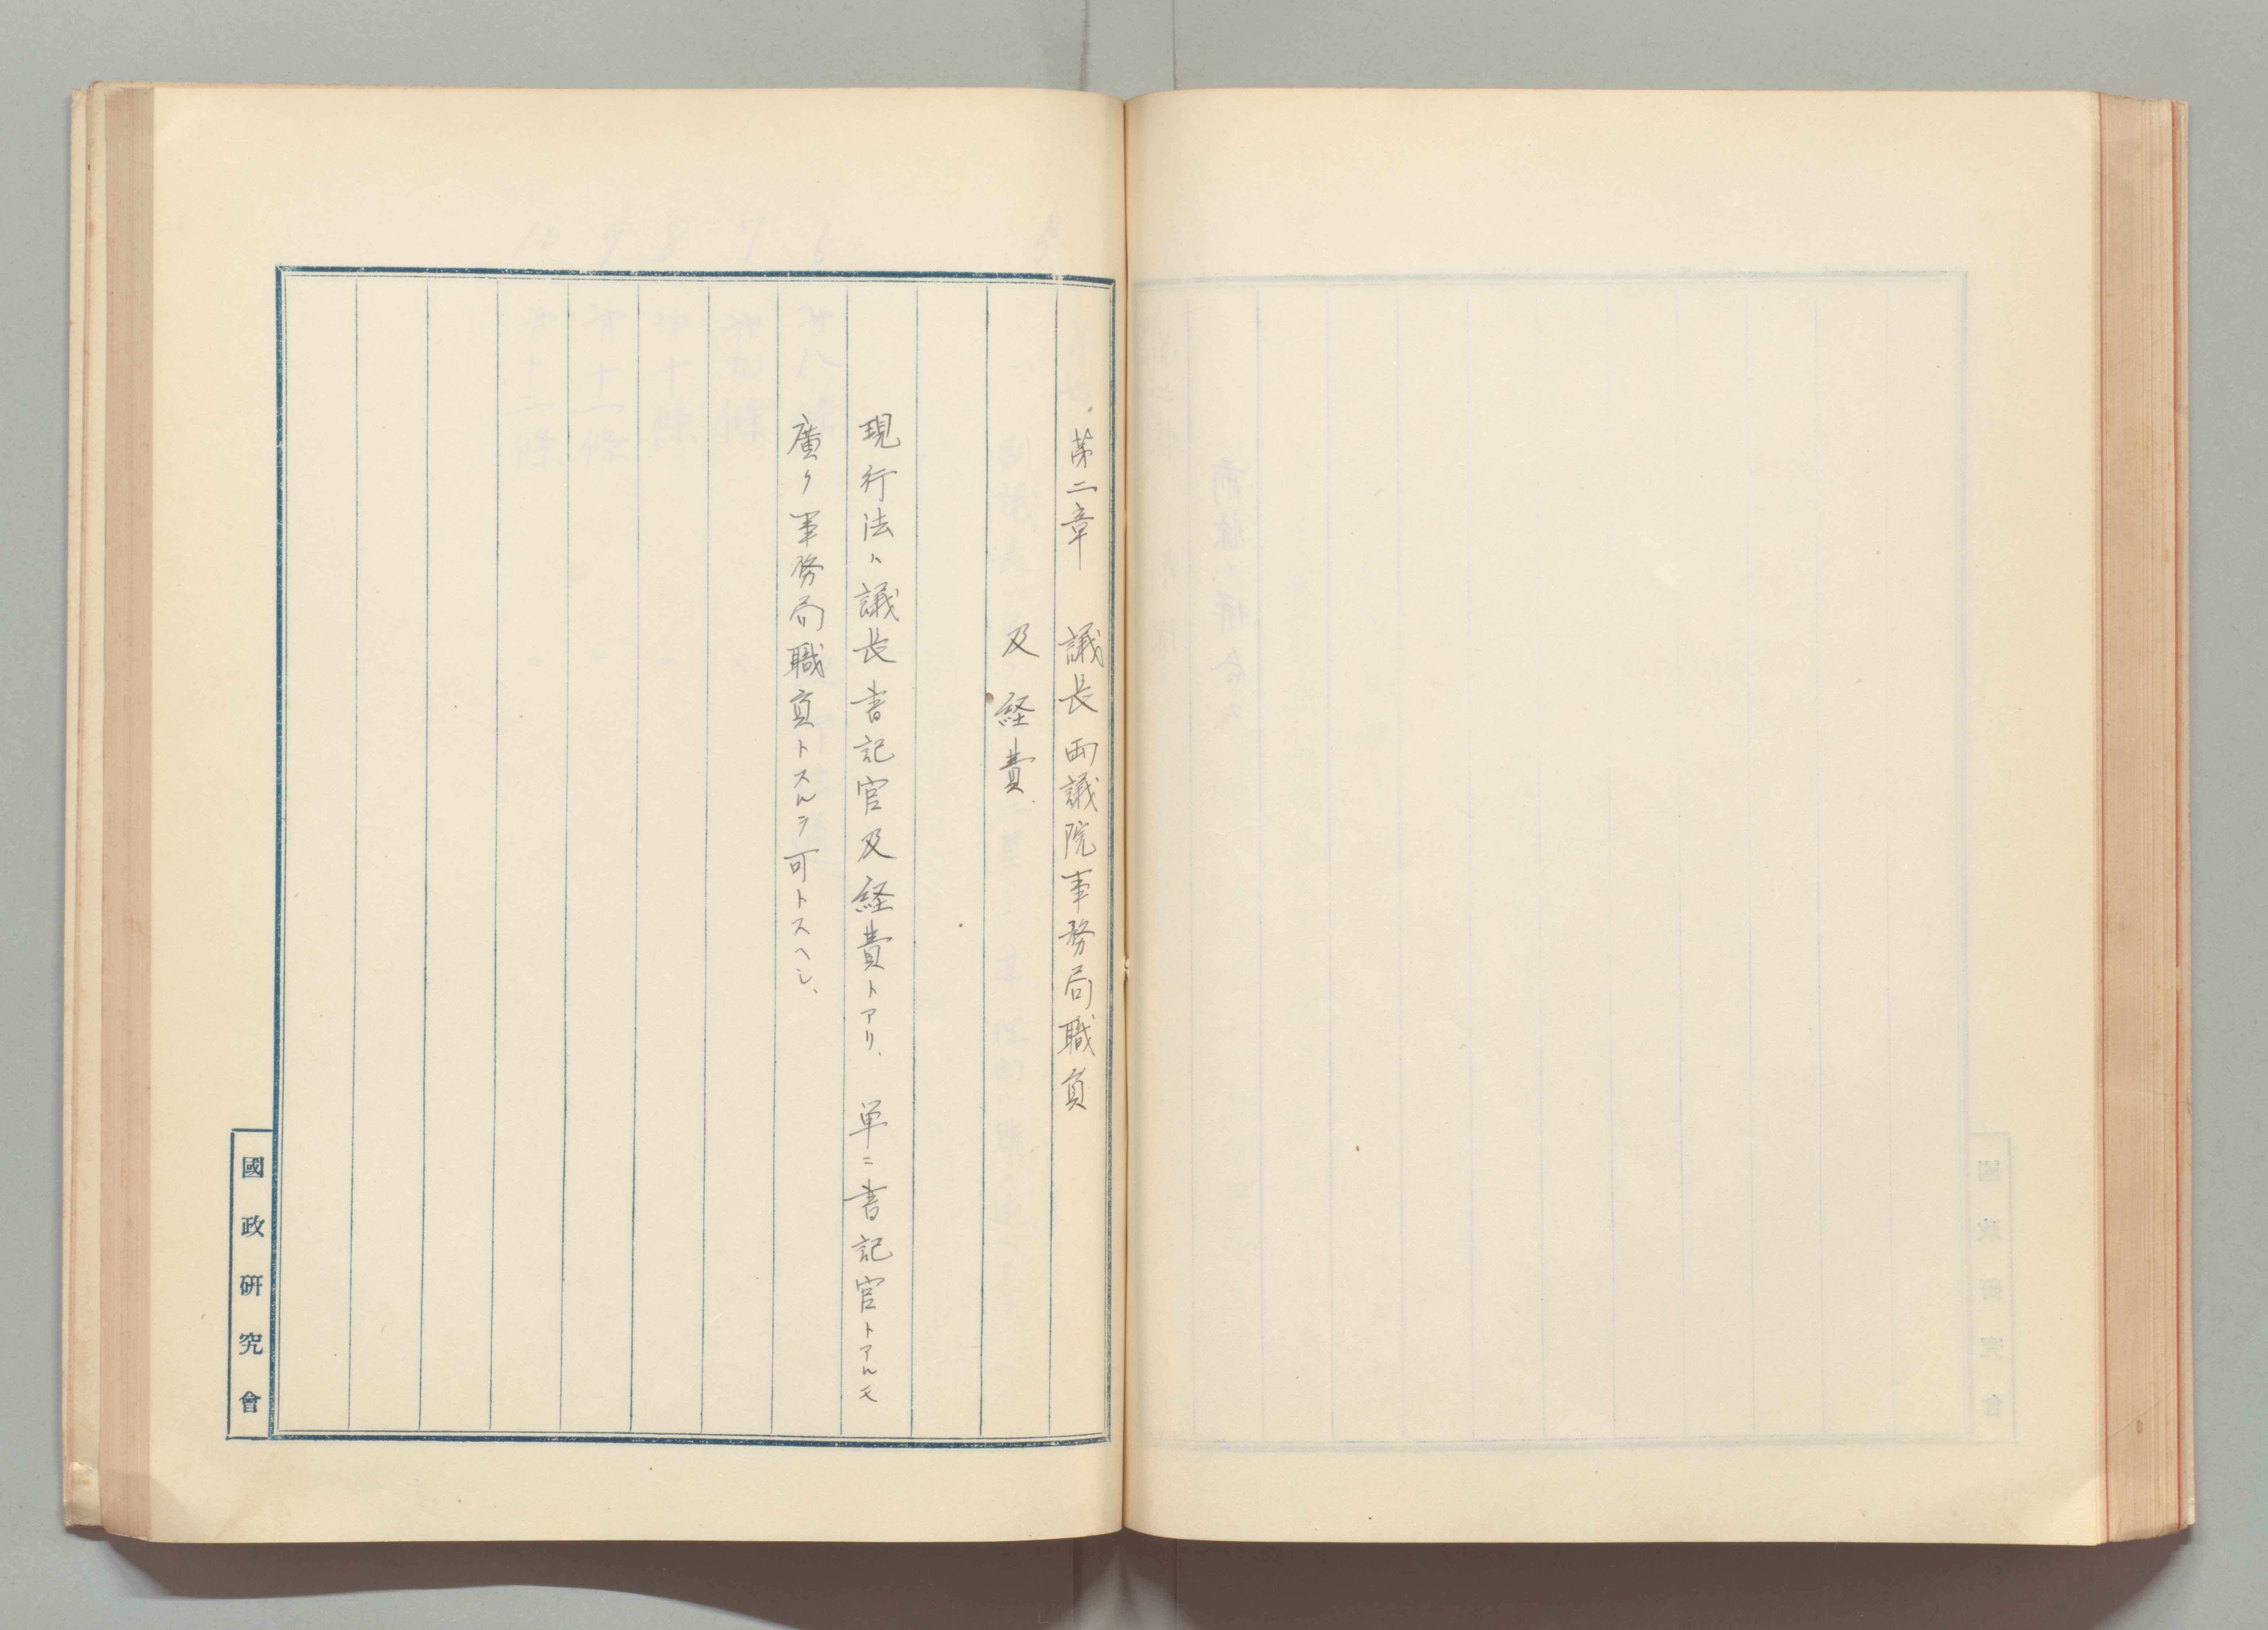 第二章　議長両議院事務局職員
及経費
現行法ハ議長書記官及経費トアリ、単ニ書記官トアルモ
廣ク事務局職員トスルヲ可トスヘシ、
國政研究會